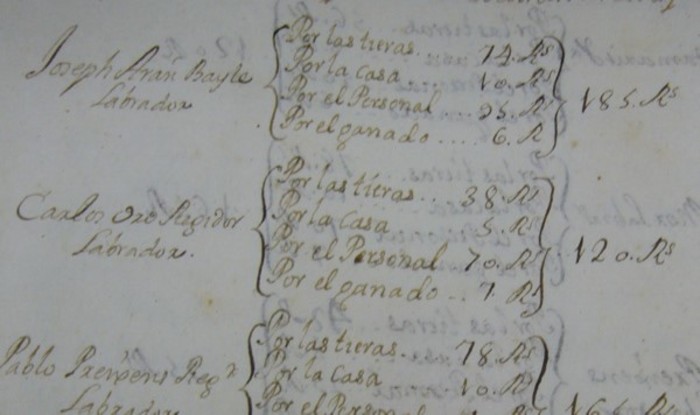 Joseph Aran Bayle
Labrador
Por las tieras.. 74. Rs
Por la casa 10. Rs
Por el Personal 95. Rs
Por el ganado .... 6. R
185. Rs
Carlos Oro Regidor
Labrador.
Por las tieras.. 38. Rs
Por la casa 5. Rs
Por el Personal 70. Rs
Por el ganado .. 7. Rs
120. Rs
Pablo
Labrador
Por las tieras. 78. Rs
Por la casa 10. Rs
Por el Personal